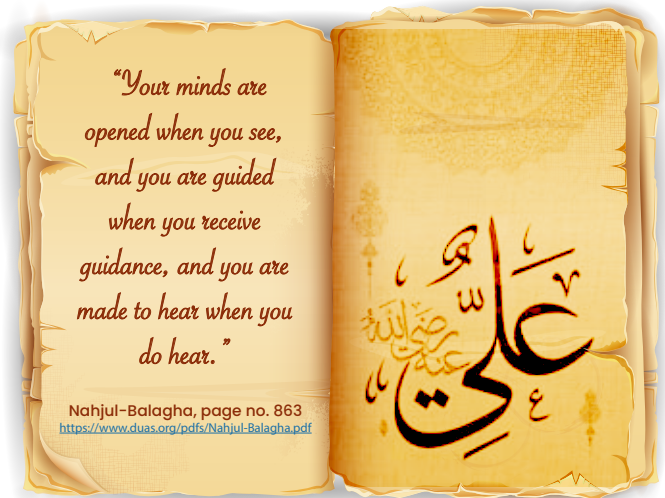 “Your minds are
opened when you see,
and you are guided
when you receive
guidance, and you are
made to hear when you
do hear.”
Nahjul-Balagha, page no. 863
https://www.duas.org/pdfs/Nahjul-Balagha.pdf
عَلِيّ
رضي الله عنه